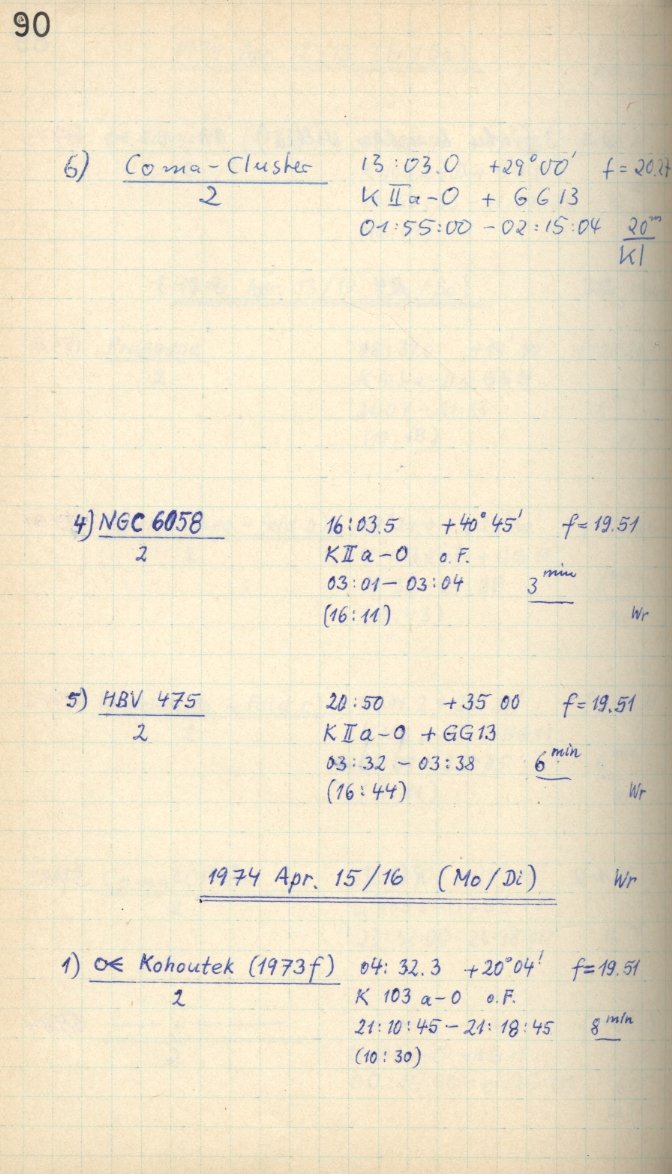 90
6) Coma-Cluster 13:03.0 +29°00' f=20.27
2 K IIa-O + GG13
01:55:00 - 02:15:04 20m
Kl
4) NGC 6058 16:03.5 +40°45' f=19.51
2 K IIa-O o.F.
03:01 - 03:04 3 min
(16:11) Wr
5) HBV 475 20:50 +35 00 f=19.51
2 K IIa-O + GG13
03:32 - 03:38 6 min
(16:44) Wr
1974 Apr. 15/16 (Mo/Di) Wr
1) Kohoutek (1973f) 04:32.3 +20°04' f=19.51
2 K 103 a-O o.F.
21:10:45 - 21:18:45 8 min
(10:30)